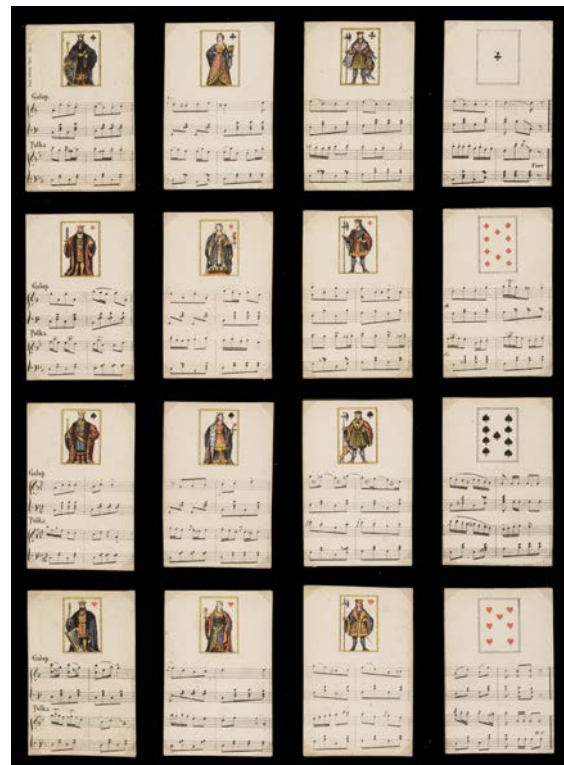 Galop.
Polka
Fine
Galop.
Polka
Galop.
Polka
Galop.
Polka
D.C.